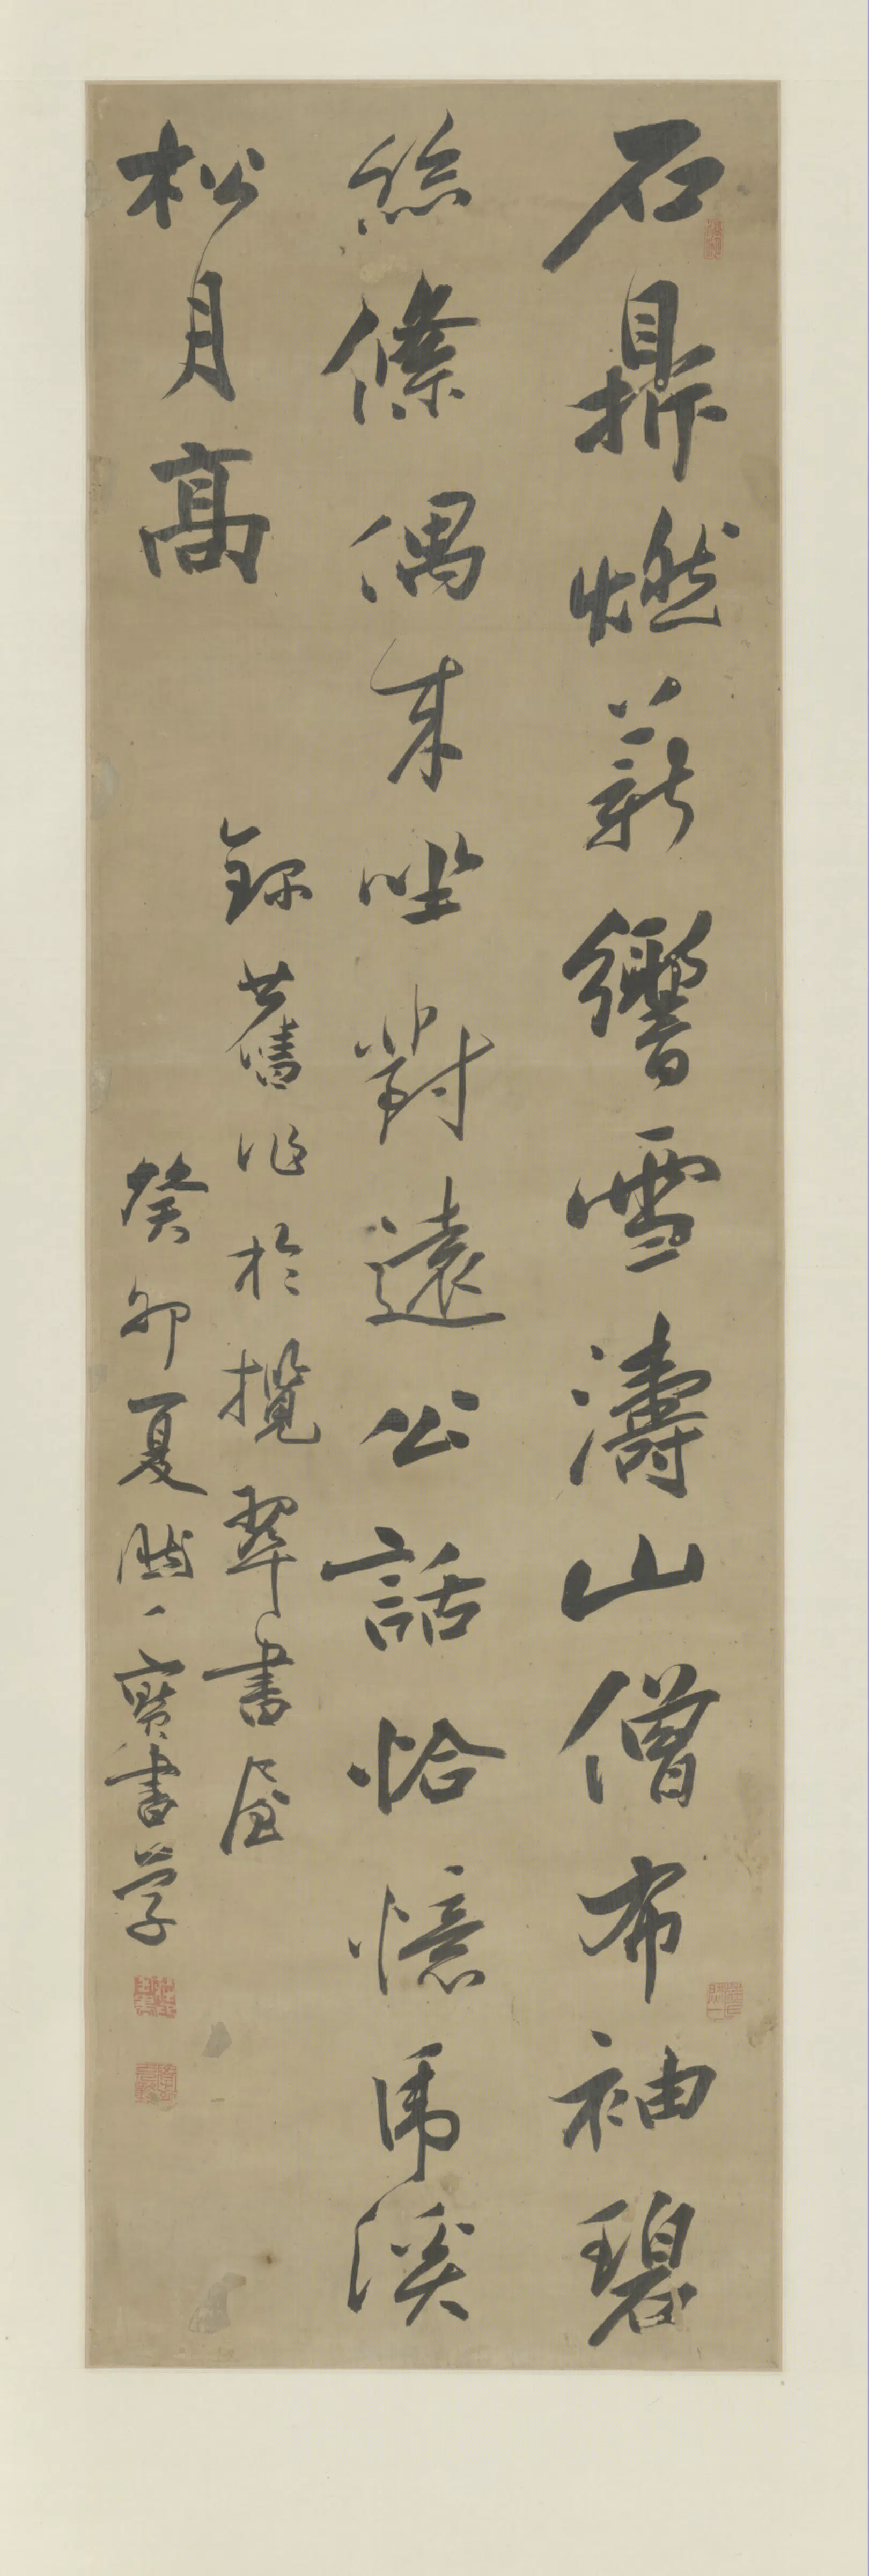 石鼎燃薪響雪濤山僧布袖碧
絲絛偶來坐對遠公話恰憶虎溪
松月高
錄舊作於攬翠書屋
癸卯夏
寶書